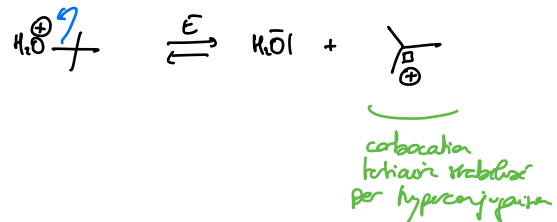 H₂O⊕ E⁻ ⇌ H₂O| + ⊕
carbocation
tertiaire stabilisé
par hyperconjugaison